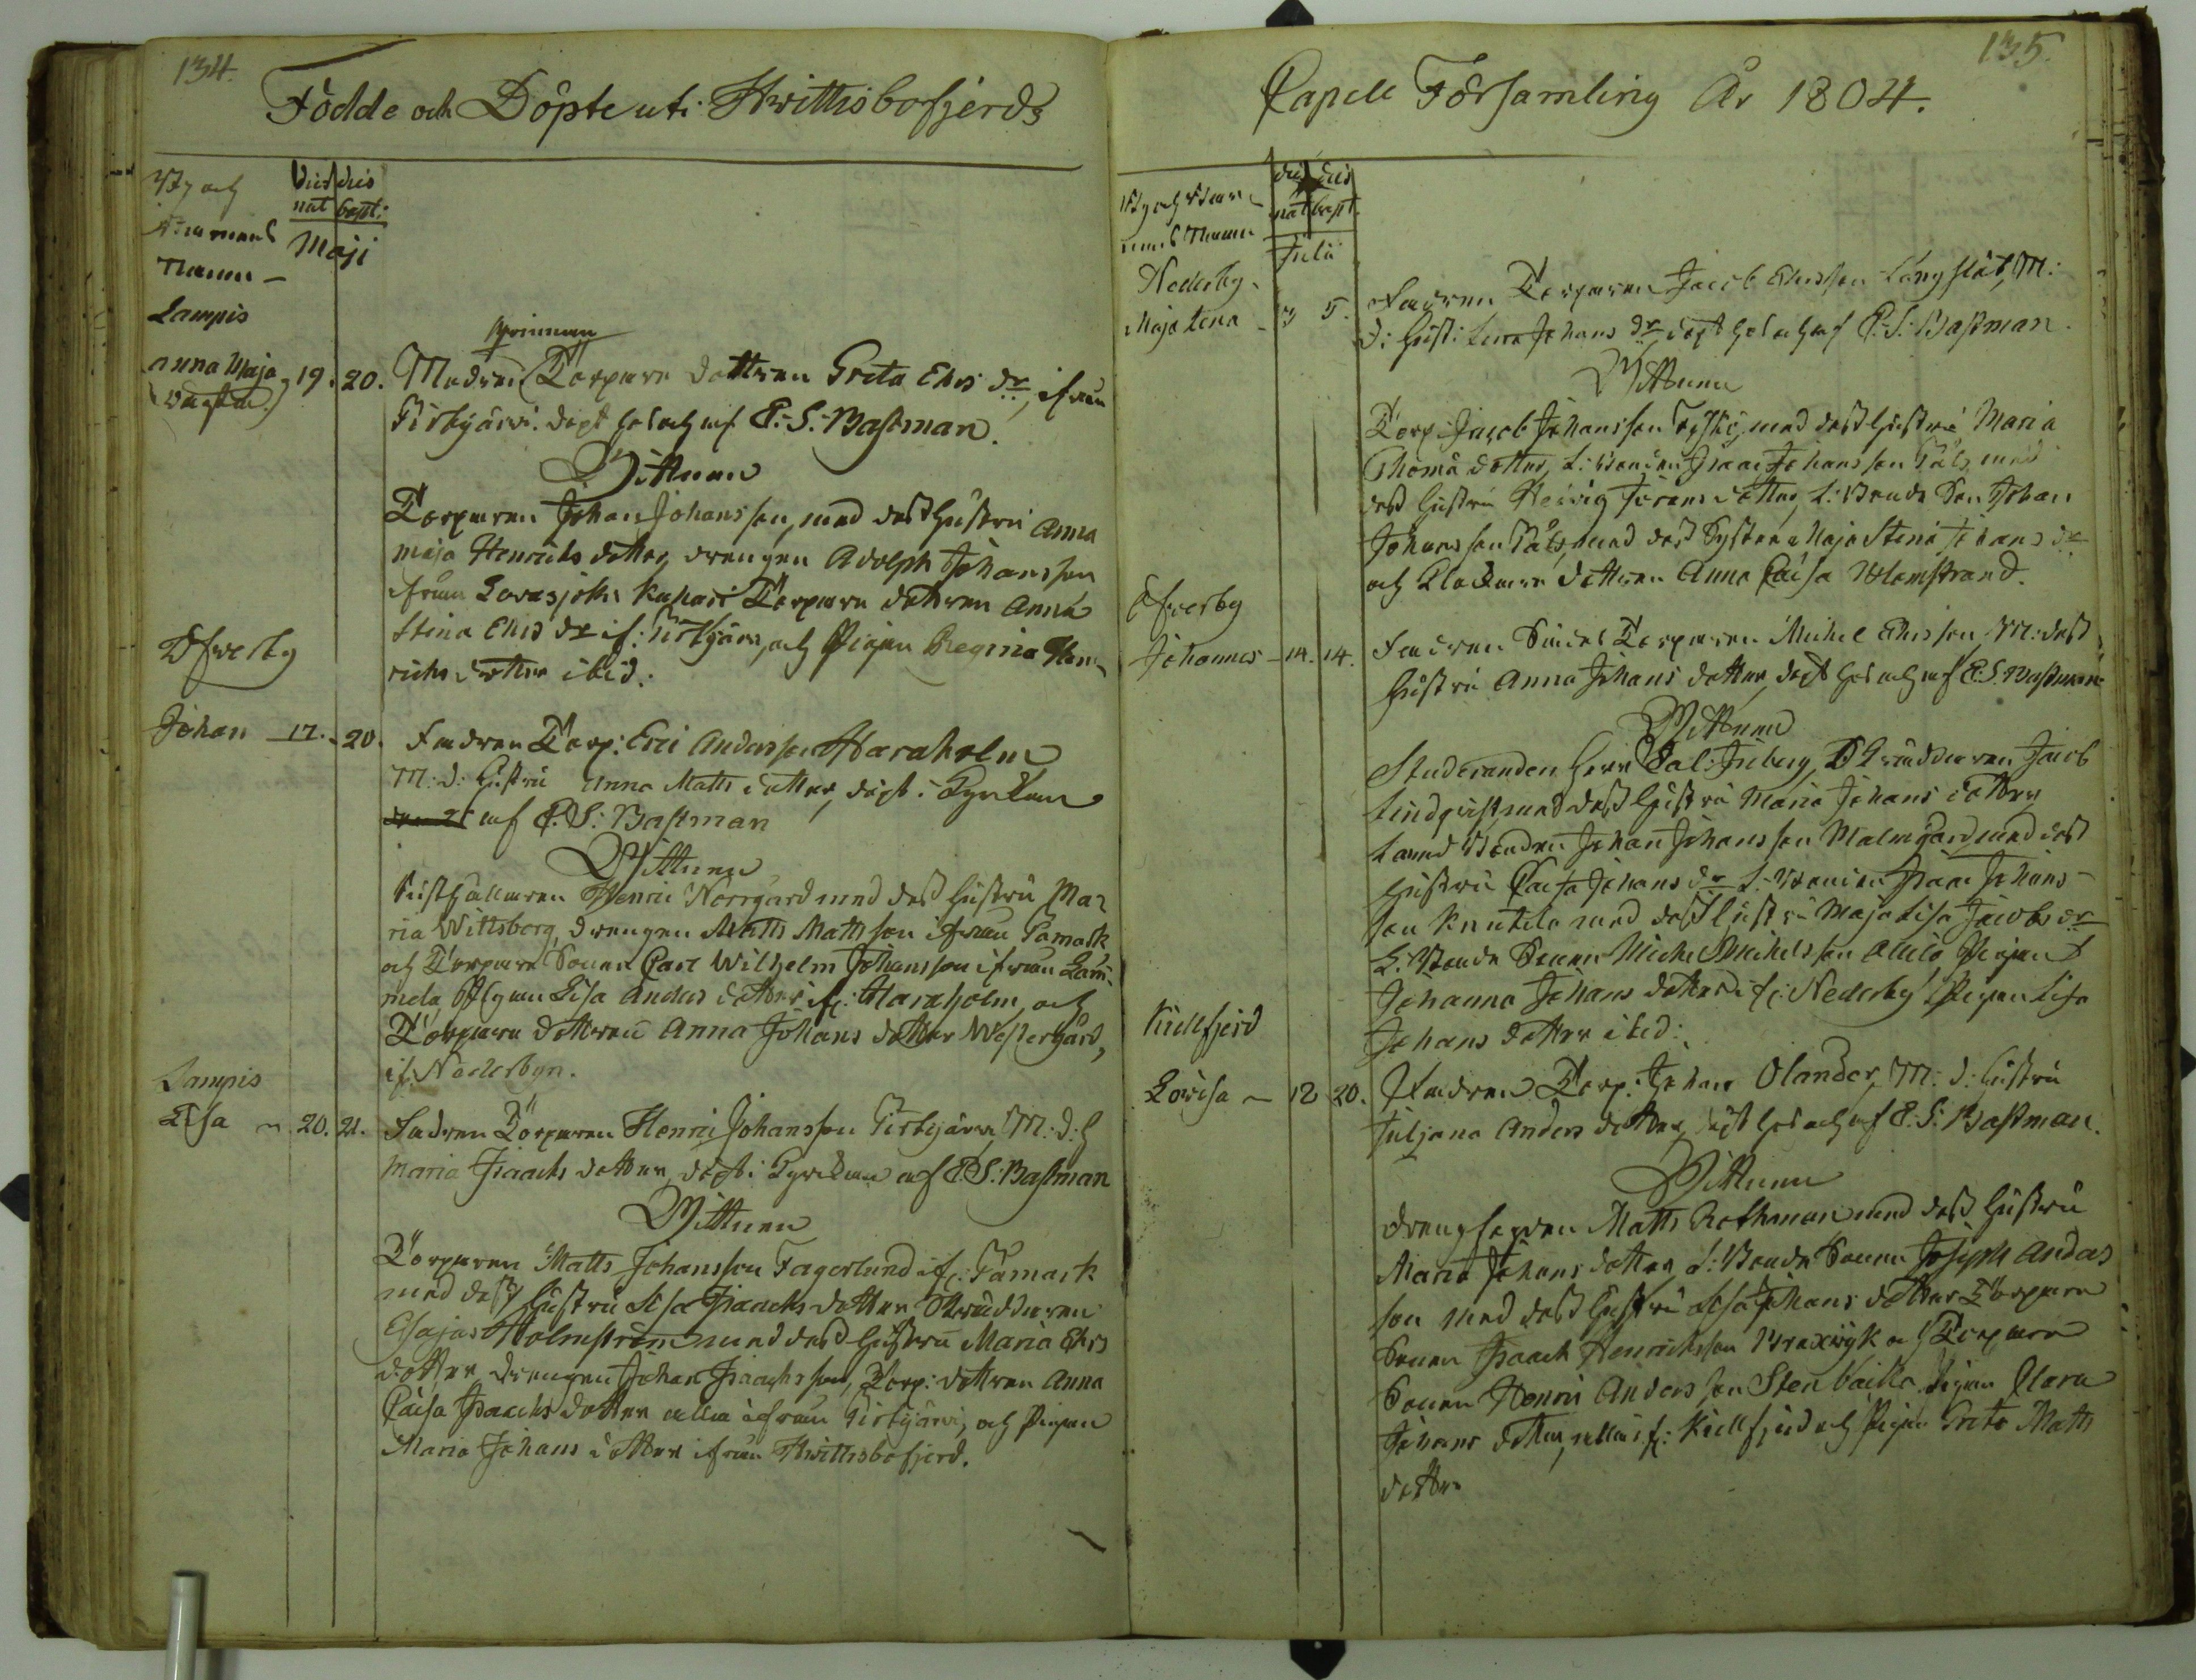 134.
Födde och Döpte uti Hwittisbofjerds
By och
Barnens
Namn
dies dies
nat bapt:
Maji
Lampis
Anna Maja
19. 20.
qvinnan
Modren Torpare dottren Greta Ers dr, ifrån
Pirkjärwi. döpt hos och af E. S. Bastman.
Wittnen
Torparen Johan Johansson, med dess hustru Anna
Maja Henrichs dotter, drengen Adolph Johansson
ifrån Torpare dottren Anna
Stina Ers dr if: Pirkjärwi, och Pigan Regina Hen-
richs dotter ibid:
Ofwerby
Johan 17. 20.
Fadren Torp: Eric Andersson Haraholm
M: d: hustru Anna Matts dotter, döpt i Kyrkan
af E. S. Bastman
Wittnen
Rusthållaren Henric Norrgård med dess hustru Ma-
ria Wittsberg, drengen Matts Mattsson ifrån Tamark
och Torpare Sonen Carl Wilhelm Johansson ifrån Lam-
mela, Pigan Lisa Anders dotter if: Haraholm, och
Torpare dottren Anna Johans dotter Westergård,
if: Nederbyn.
Lampis
Lisa 20. 21.
Fadren Torparen Henric Johansson Pirkjärwi M: d: h
Maria Isaachs dotter, döpt i Kyrkan af E. S. Bastman
Wittnen
Torparen Matts Johansson Fagerlund if: Tamark
med dess hustru Lisa Isaachs dotter
Esajas Holmström med dess hustru Maria Ers
dotter, drengen Johan Isaachsson, Torp: dottren Anna
Caisa Isaachs dotter alla ifrån Pirkjärwi, och Pigan
Maria Johans dotter ifrån Hwittisbofjerd.
135.
Capell Församling År 1804.
By och Bar-
nens Namn
dies dies
nat bapt.
Julii
Nederby.
Maja Lena 3 5.
Fadren Torparen Jacob Ersson Långslät, M:
d: hust: Lena Johans dr döpt hos och af E. S. Bastman.
Wittnen
Torp: Jacob Johansson med dess hustru Maria
Thomæ dotter, L: Bonden Isaac Johansson Påls, med
dess hustru Hedvig Jörans dotter, L: Bonde Son Johan
Johansson Påls, med dess Syster Maja Stina Johans dr
och Klockare dottren Anna Caisa Blomstrand.
Öfwerby
Johannes 14. 14.
Fadren Torparen Michel Ersson, M: dess
hustru Anna Johans dotter, döpt hos och af E. S. Bastman
Wittnen
Studeranden Herr Jacob
Lindqvist, med dess hustru Maria Johans dotter
Land Bonden Johan Johansson Malmgård, med dess
hustru Caisa Johans dr L. Bonden Isaac Johans-
son Knutila med dess hustru Maja Lisa Jacobs dr
L. Bonde Sonen Michel Michelsson Pigan
Johanna Johans dotter if: Nederby, Pigan Lisa
Johans dotter ibid:
Kiellfjerd
Lowisa 12 20.
Fadren Torp: Johan Olander, M: d: hustru
Juljana Anders dotter, döpt hos och af E. S. Bastman.
Wittnen
Matts Rothman med dess hustru
Maria Johans dotter, L: Bonde Sonen Joseph Anders
son med dess hustru Lisa Johans dotter Torpare
Sonen Isaach Henrichsson Braxwyk och Torpare
Sonen Henric Andersson Stenbacka, Pigan Clara
Johans dotter, alla if: Kiellfjerd och Pigan Greta Matts
dotter